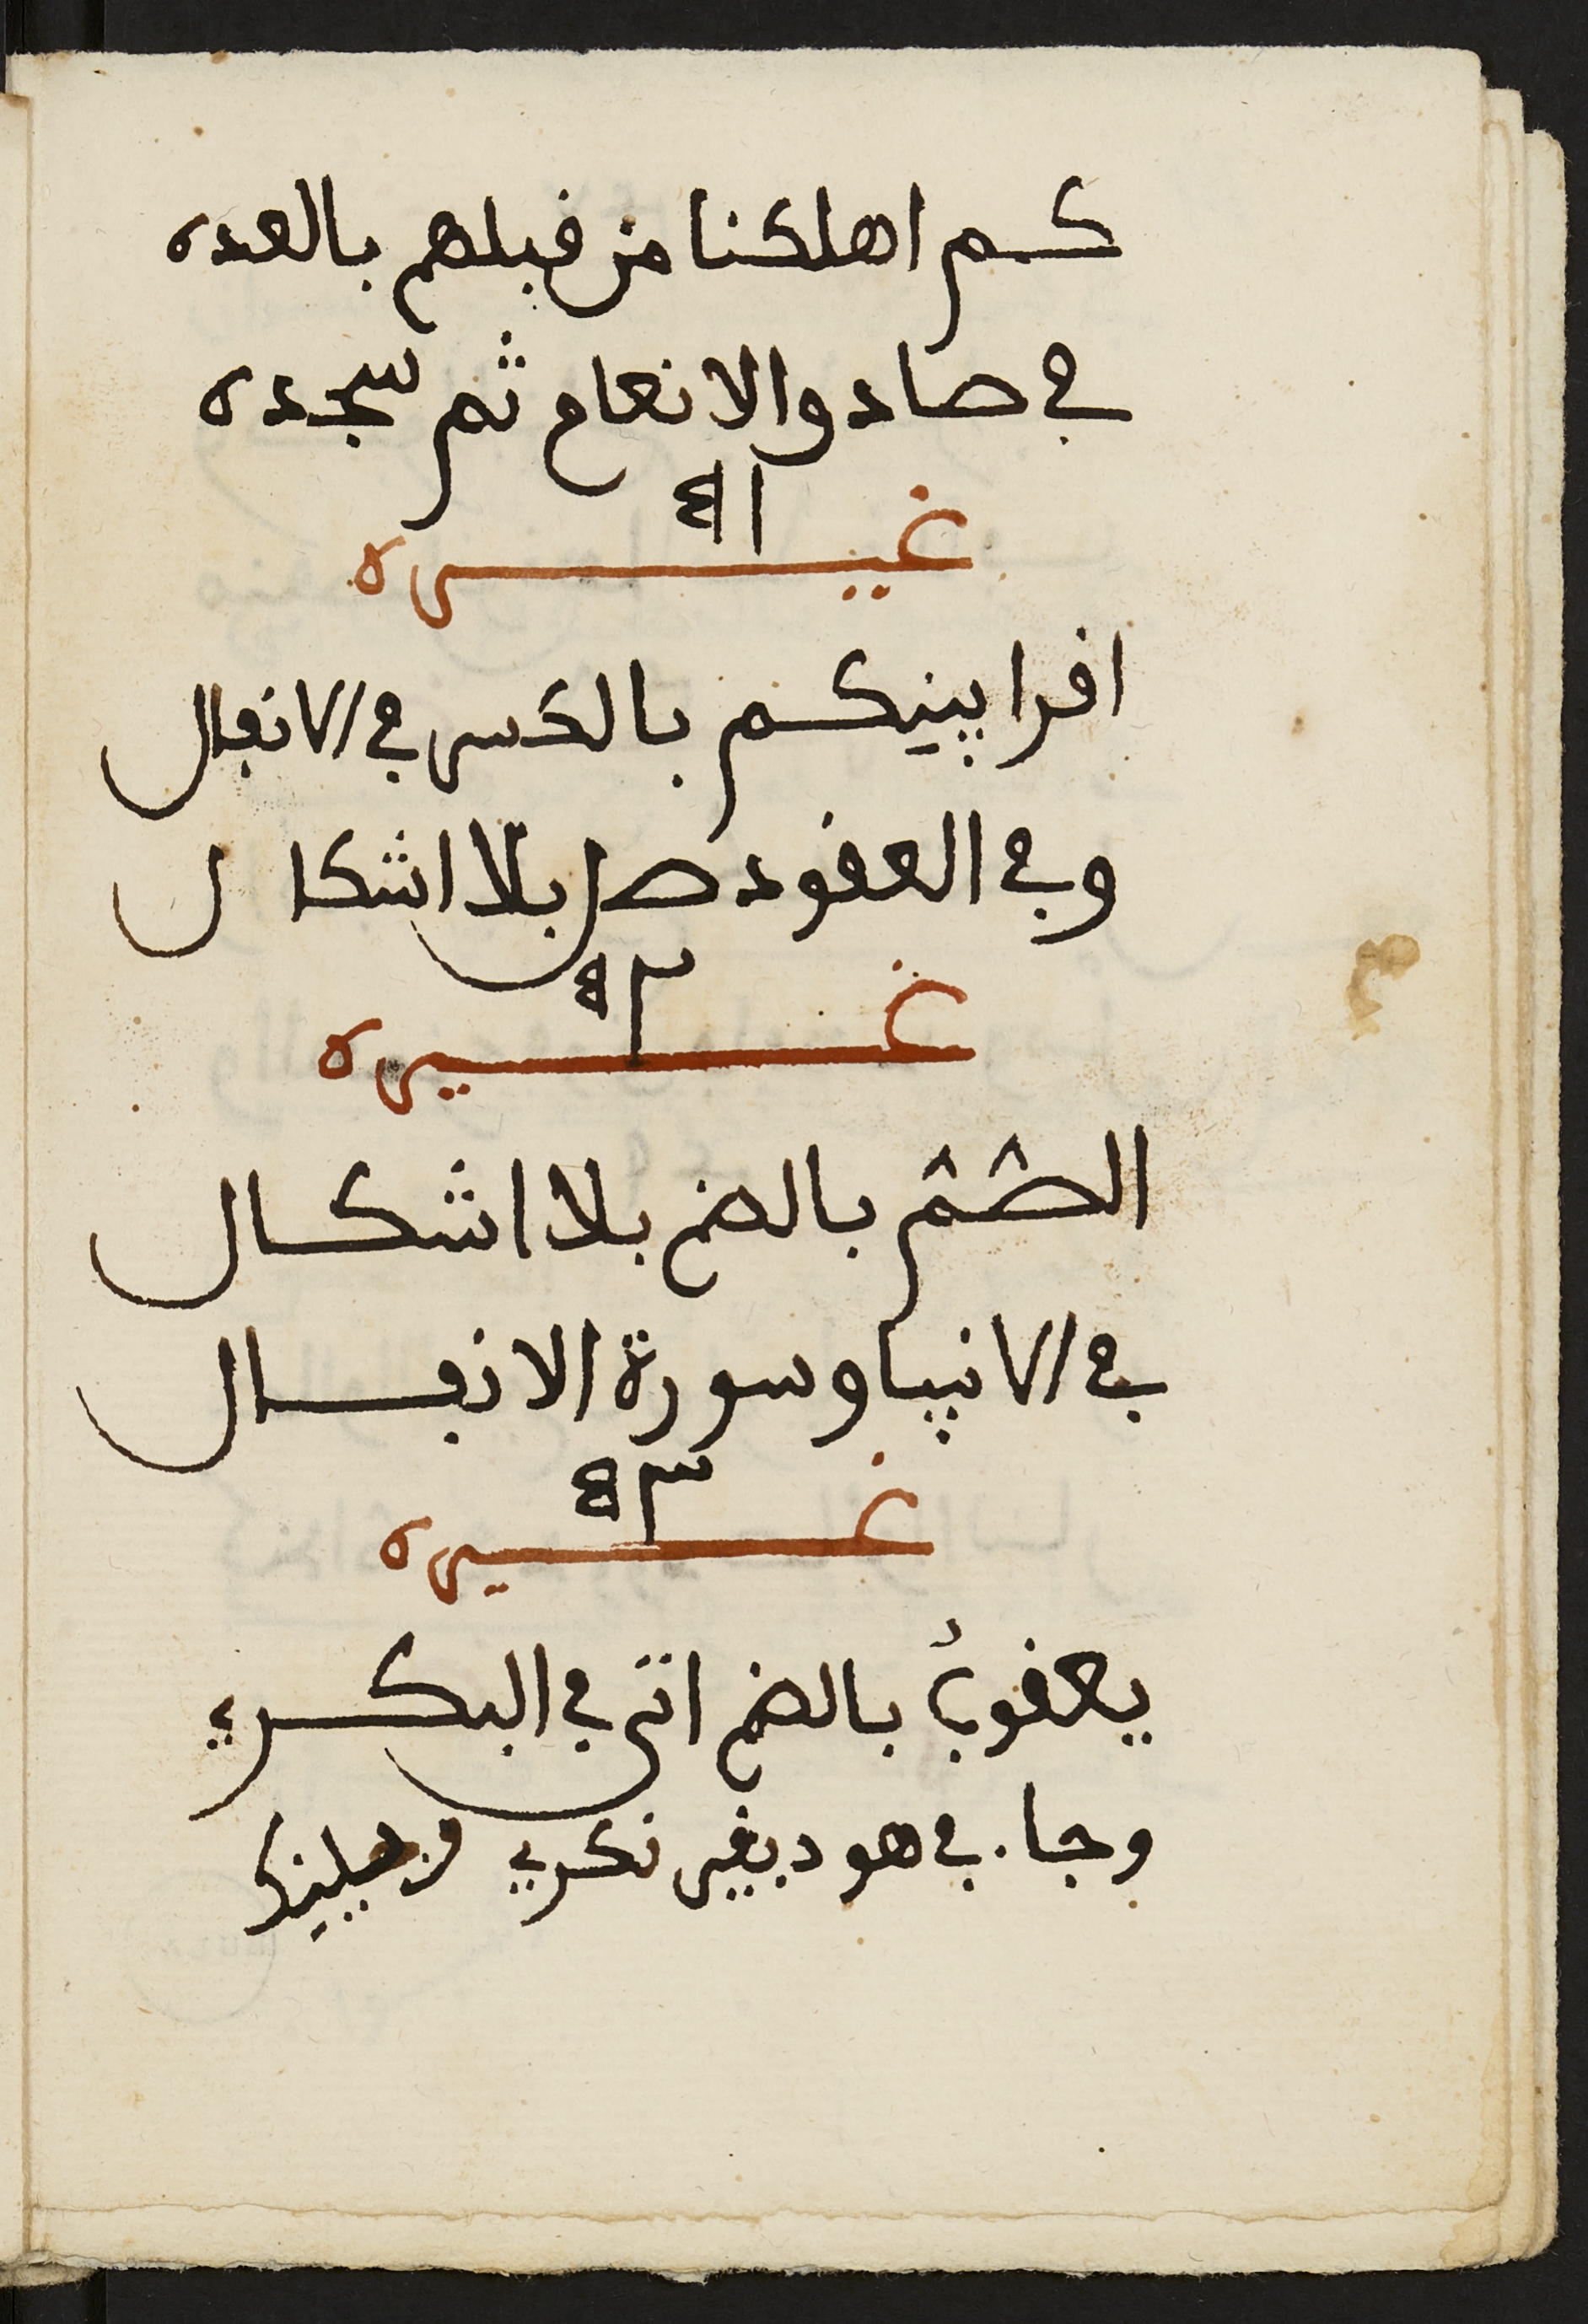 كم اهلكنا من فبلهم بالعده
في صاد والانعام ثم سجده
غيره
افرا بينكم بالكسر في الانفال
وفي العفود صل بلا اشكال
غيره
الصُّمُّ بالضم بلا اشكال
في الانبيا وسورة الانفال
غيره
يعفوبُ بالضم اتى في البكر
وجا في هود بغير نكر